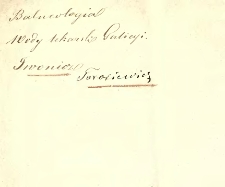 Balneologia
Wody lekarsk. Galicyi.
Iwonicz
Torosiewicz